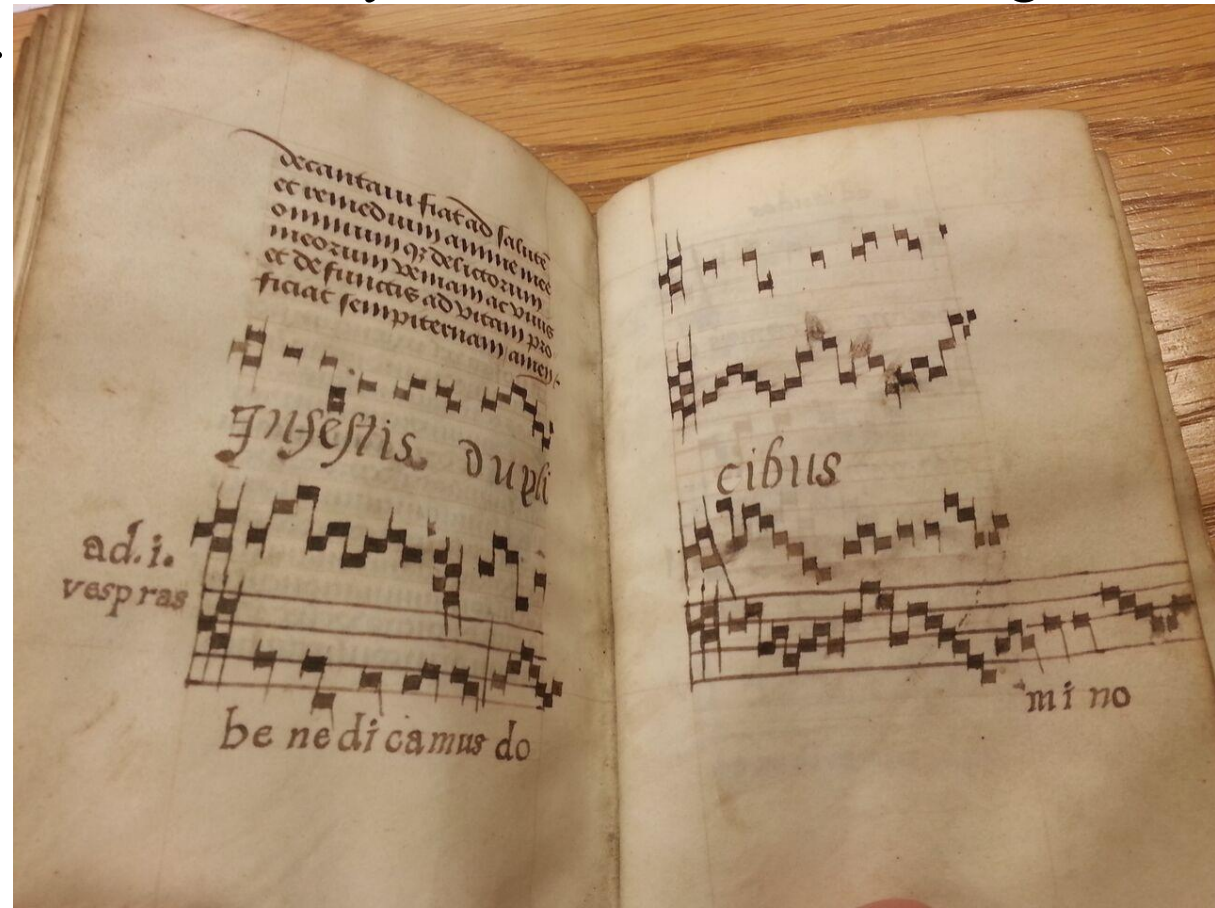 decantaui fiat ad salutē
et remedium anime mee
omnium qȝ delictorum
meorum veniam ac viuis
et defunctis ad vitam pro
ficiat sempiternam amen.
In festis dupli
ad .i.
vespras
be ne di camus do
cibus
mi no